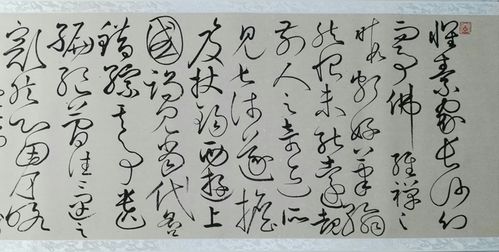 懷素家長沙幼
而事佛經禪之
暇頗好筆翰
然恨未能遠覩
前人之奇迹所
見甚淺遂擔
笈杖錫西遊上
國謁見當代名
錯綜其事遺
編絕簡往往遇之
豁然心胸略